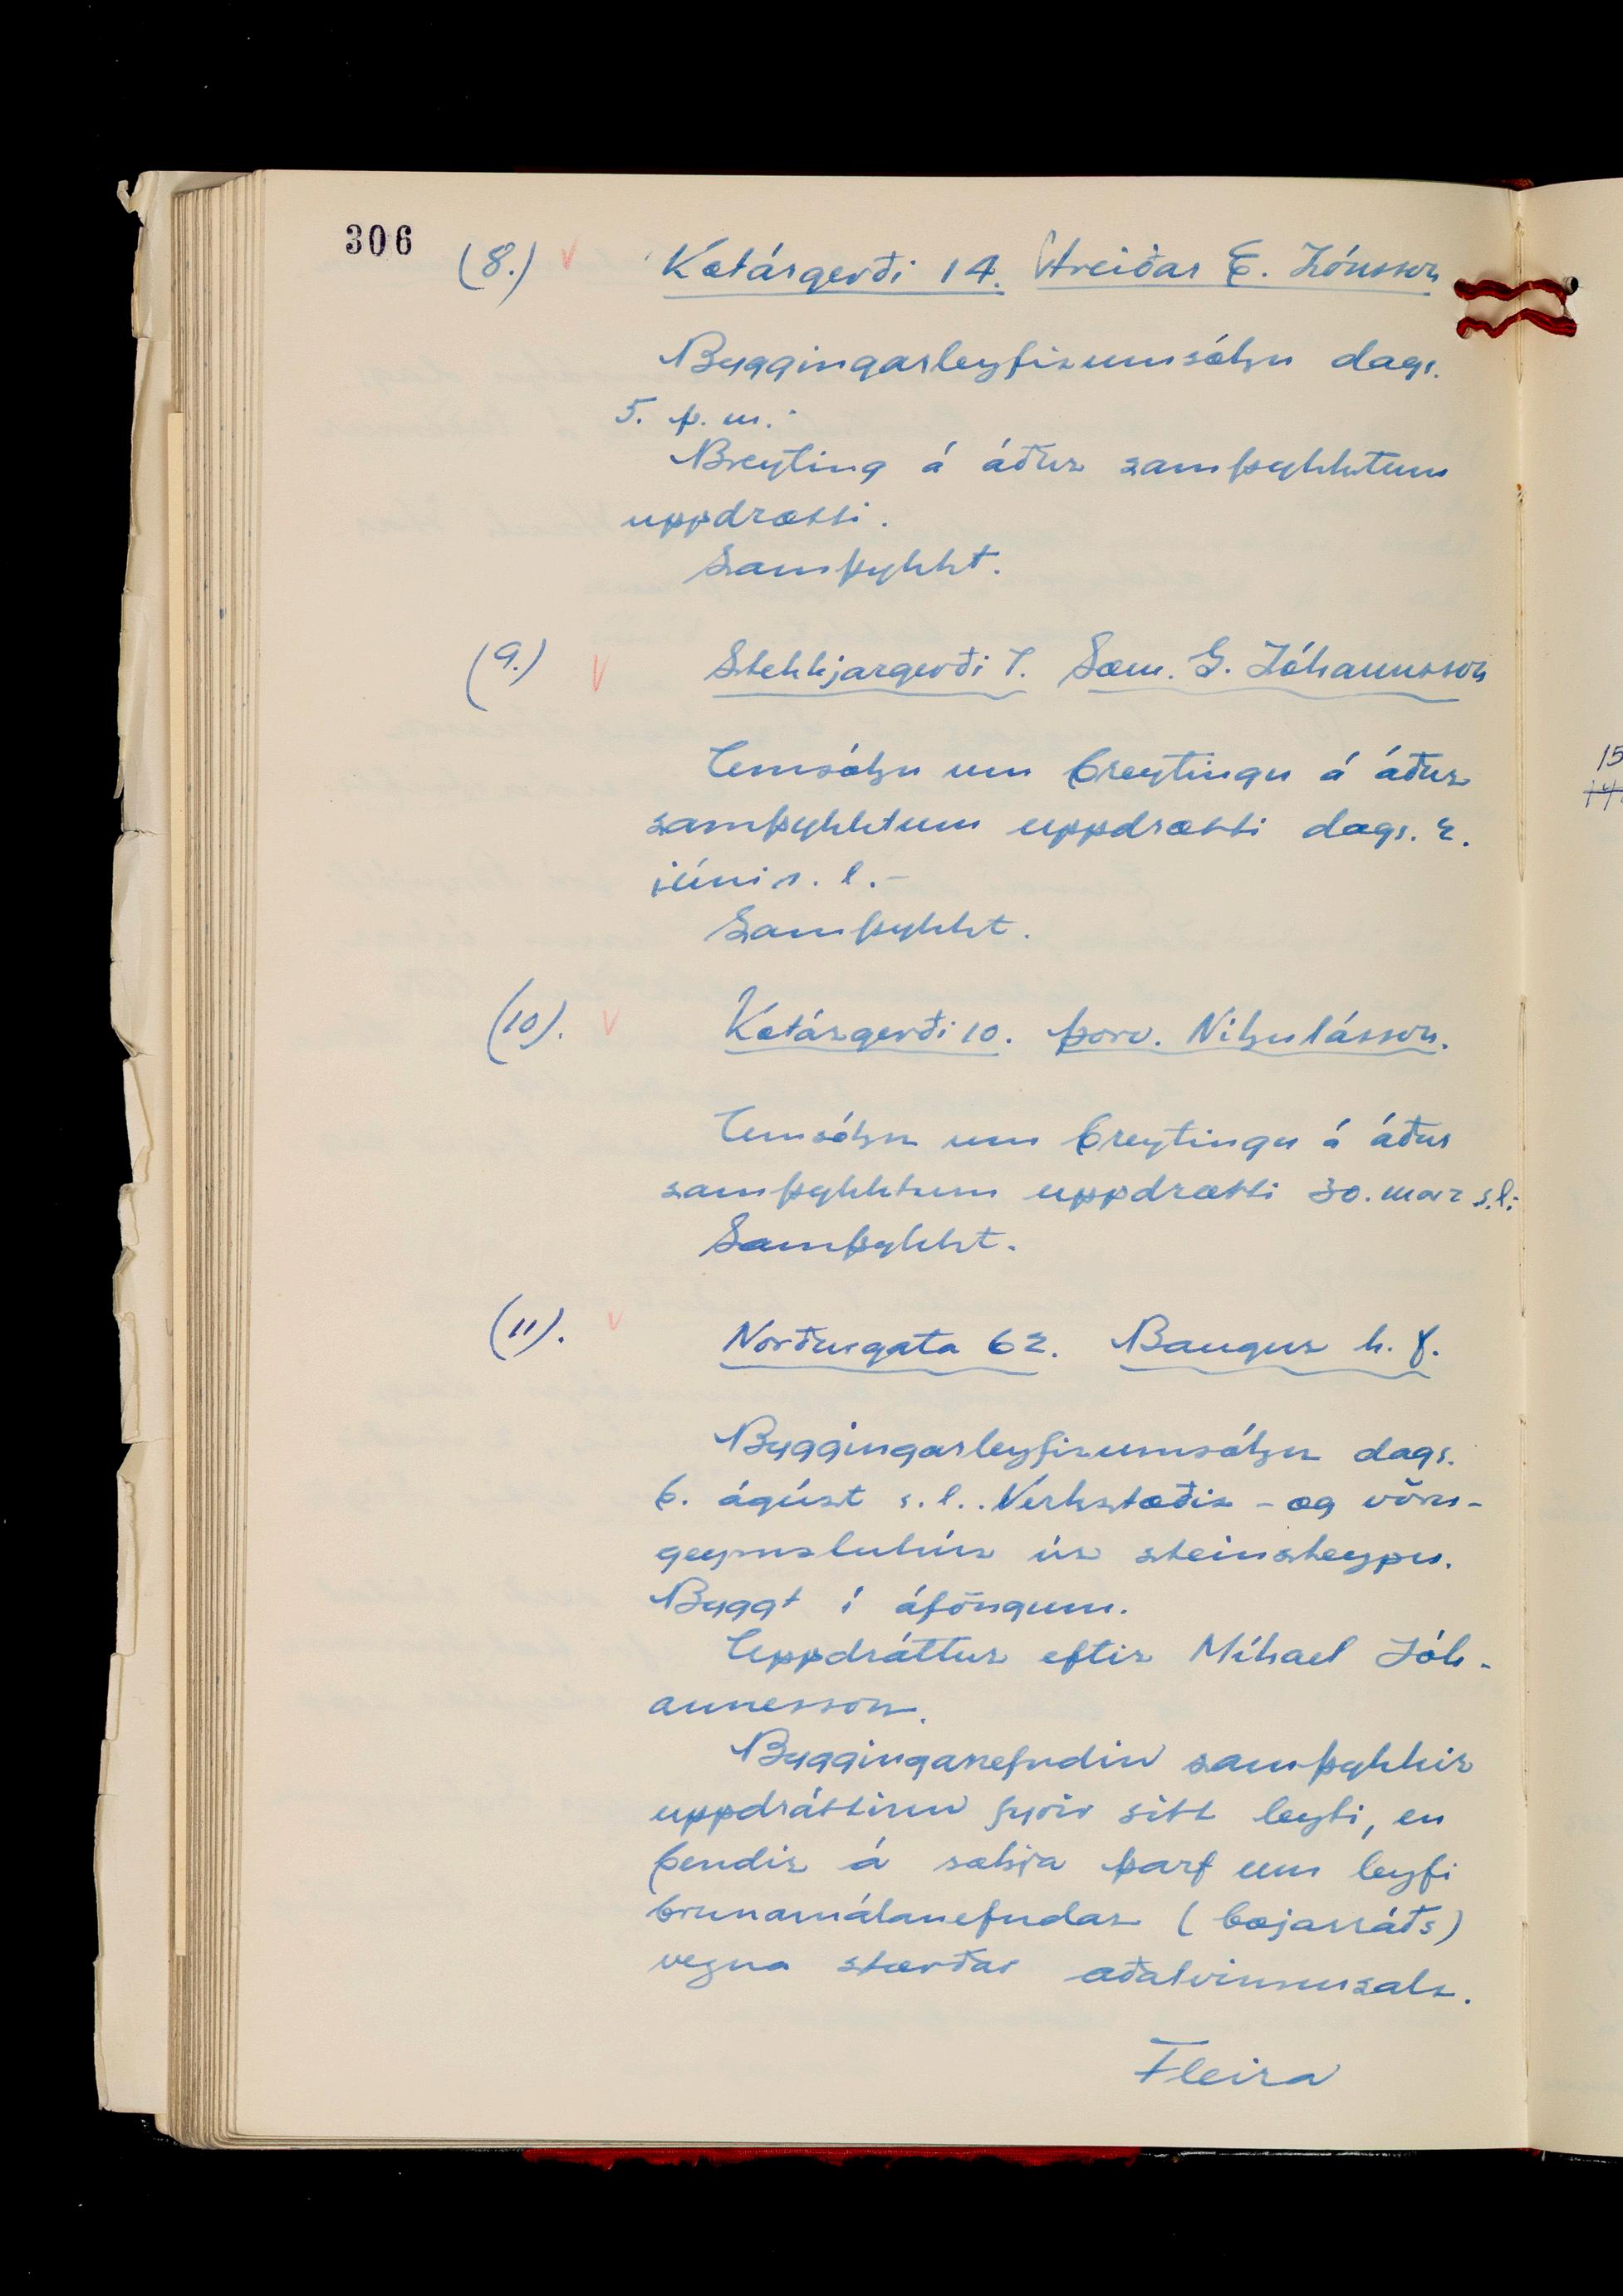 306
(8.) v Kotárgerði 14. Hreiðar E. Jónsson
Byggingarleyfisumsókn dags.
5. þ. m.-
Breyting á áður samþykktum
uppdrætti.
Samþykkt.
(9.) v Stekkjargerði 7. Sæm. G. Jóhannsson
Umsókn um breytingu á áður
samþykktum uppdrætti dags. 2.
júní s. l.-
Samþykkt.
(10). v Kotárgerði 10. Þorv. Nikulásson.
Umsókn um breytingu á áður
samþykktum uppdrætti 30. marz s.l.
Samþykkt.
(11). v Norðurgata 62. Baugur h. f.
Byggingarleyfisumsókn dags.
6. ágúst s. l.. Verkstæðis - og vöru-
geymsluhús úr steinsteypu.
Byggt í áföngum.
Uppdráttur eftir Mikael Jóh-
annesson.
Bygginganefndin samþykkir
uppdráttinn fyrir sitt leyti, en
bendir á sækja þarf um leyfi
brunamálanefndar (bæjarráðs)
vegna stærðar aðalvinnusals.
Fleira
15